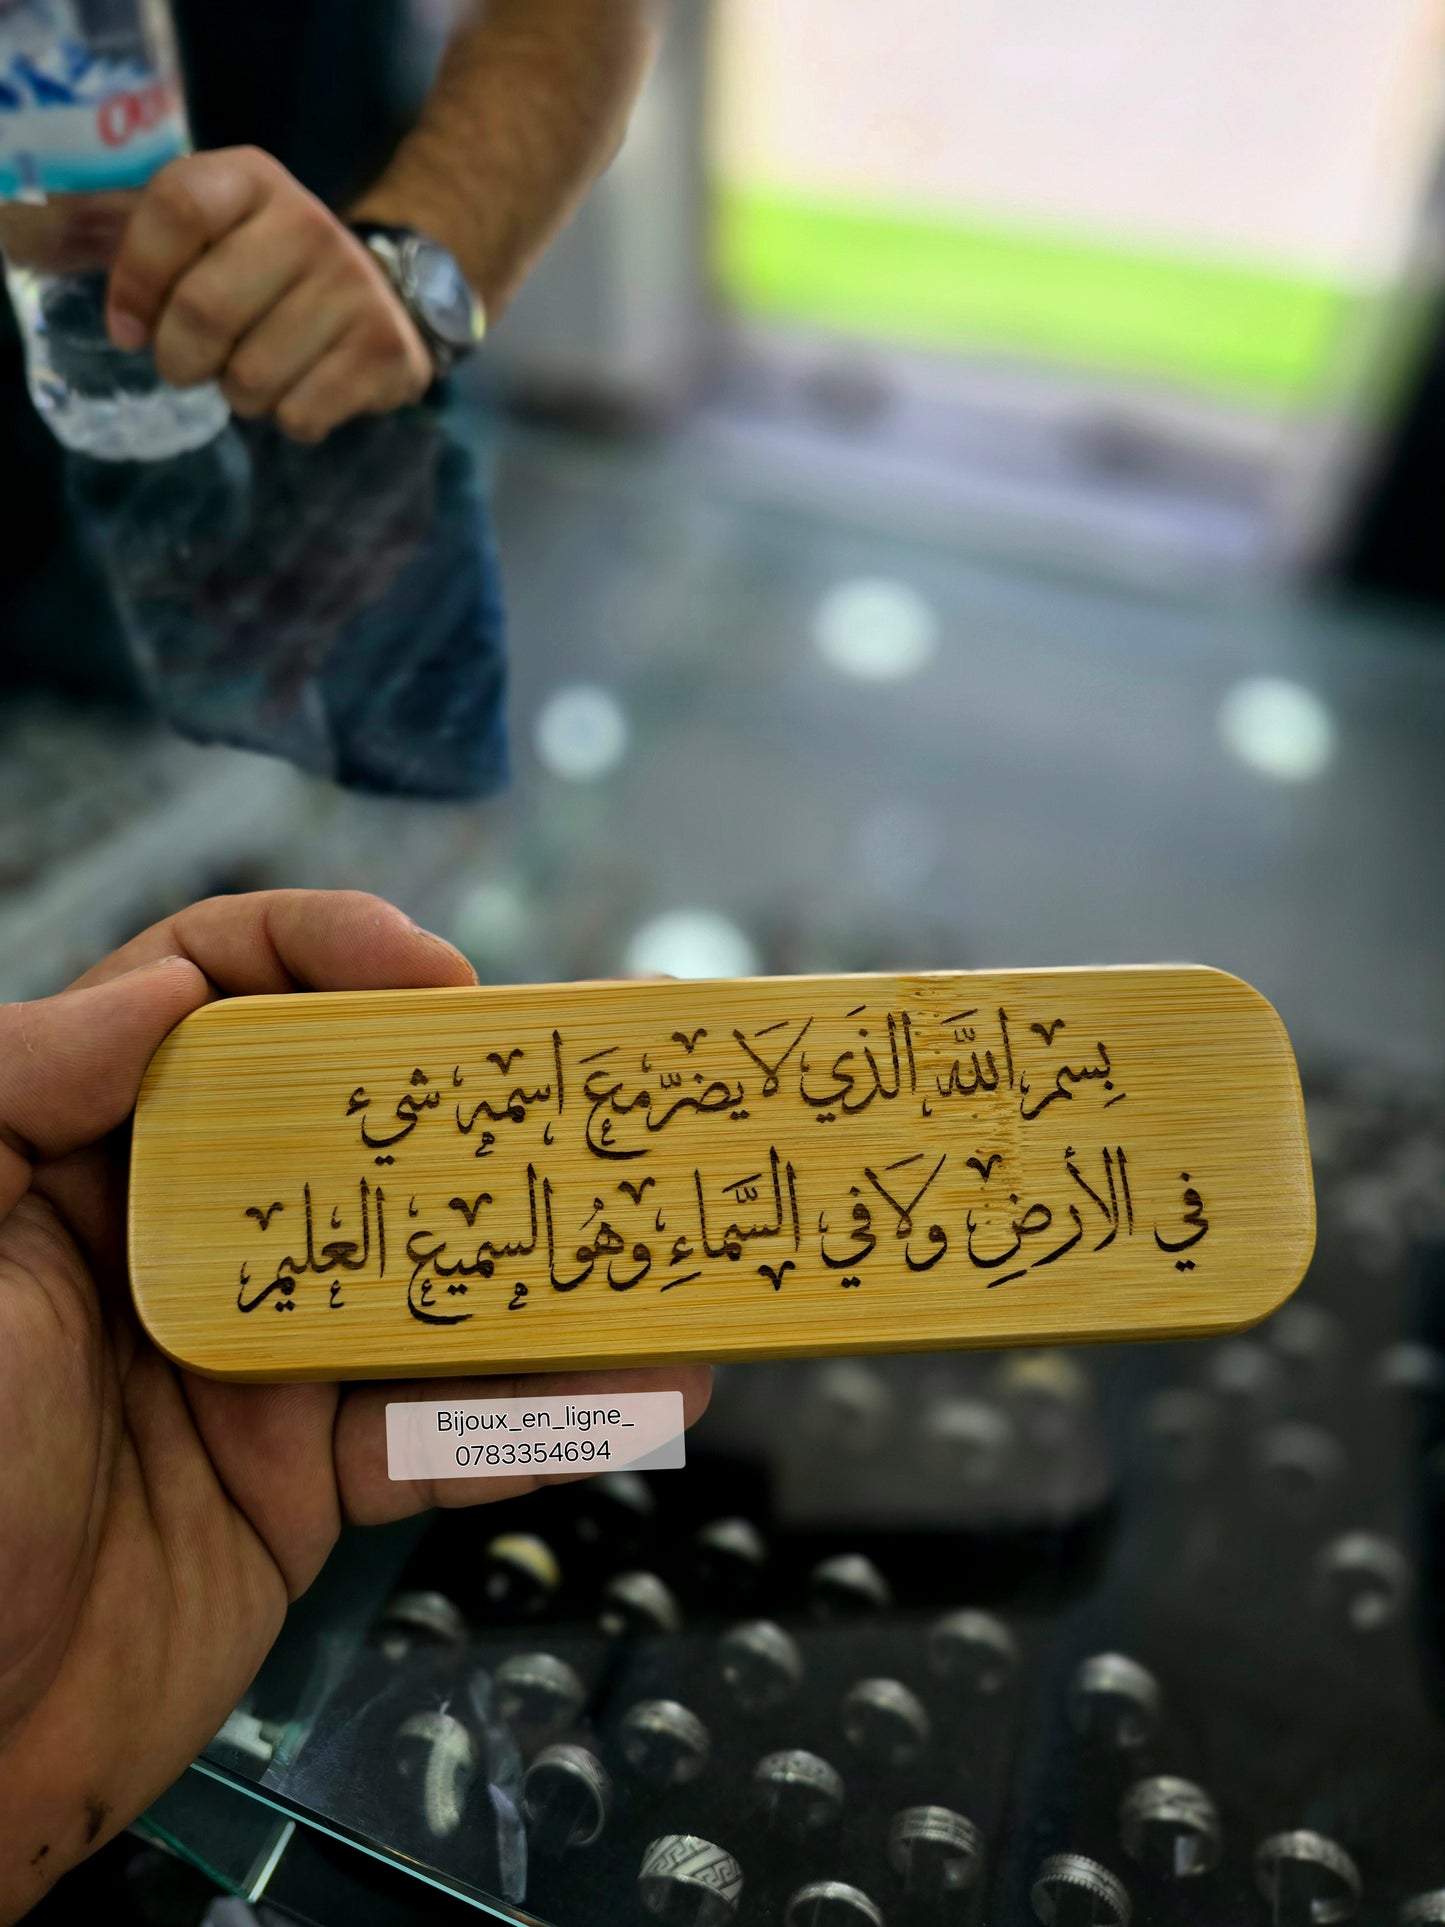 بِسمِ اللَّه الذَي لاَ يضرّ معَ اسمه شيء
في الأرضِ ولاَ في السَّماءِ وهُو السميع العليم
Bijoux_en_ligne_
0783354694